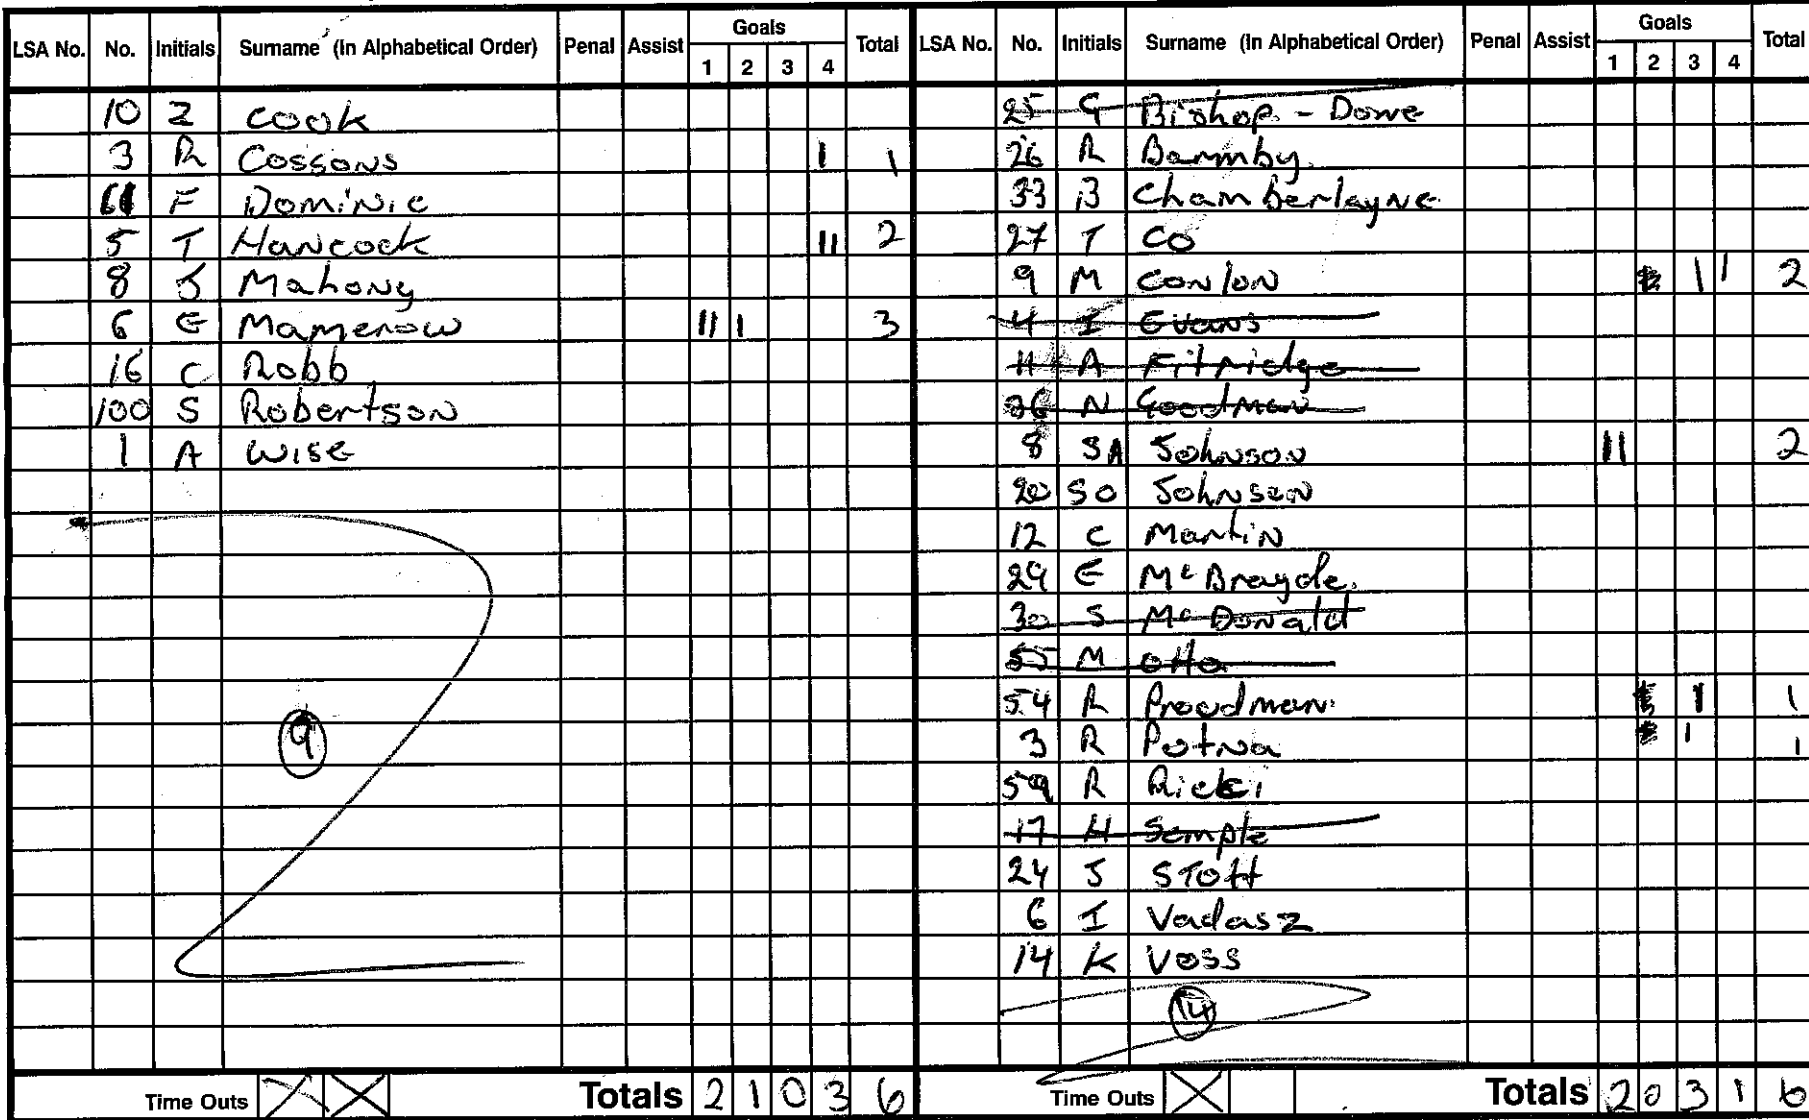 LSA No. No. Initials Surname (In Alphabetical Order) Penal Assist Goals 1 2 3 4 Total
10 Z COOK
3 R Cossons 1 1
F Dominic
5 T Hancock 11 2
8 J Mahony
6 E Mamerow 11 1 3
16 C Robb
100 S Robertson
1 A WISE
9
Time Outs X X Totals 2 1 0 3 6
LSA No. No. Initials Surname (In Alphabetical Order) Penal Assist Goals 1 2 3 4 Total
25 G Bishop - Dowe
26 R Barmby
33 B Chamberlayne
27 T CO
9 M Conlon 1 1 2
4 I Evans
11 A Fitridge
26 N Goodman
8 SA Johnson 11 2
20 SO Johnson
12 C Martin
29 E McBrayde.
30 S McDonald
55 M Otto
54 R Proudman 1 1
3 R Potna 1 1
59 R Ricki
17 H Semple
24 J STOTT
6 I Vadasz
14 K VOSS
14
Time Outs X Totals 2 0 3 1 6